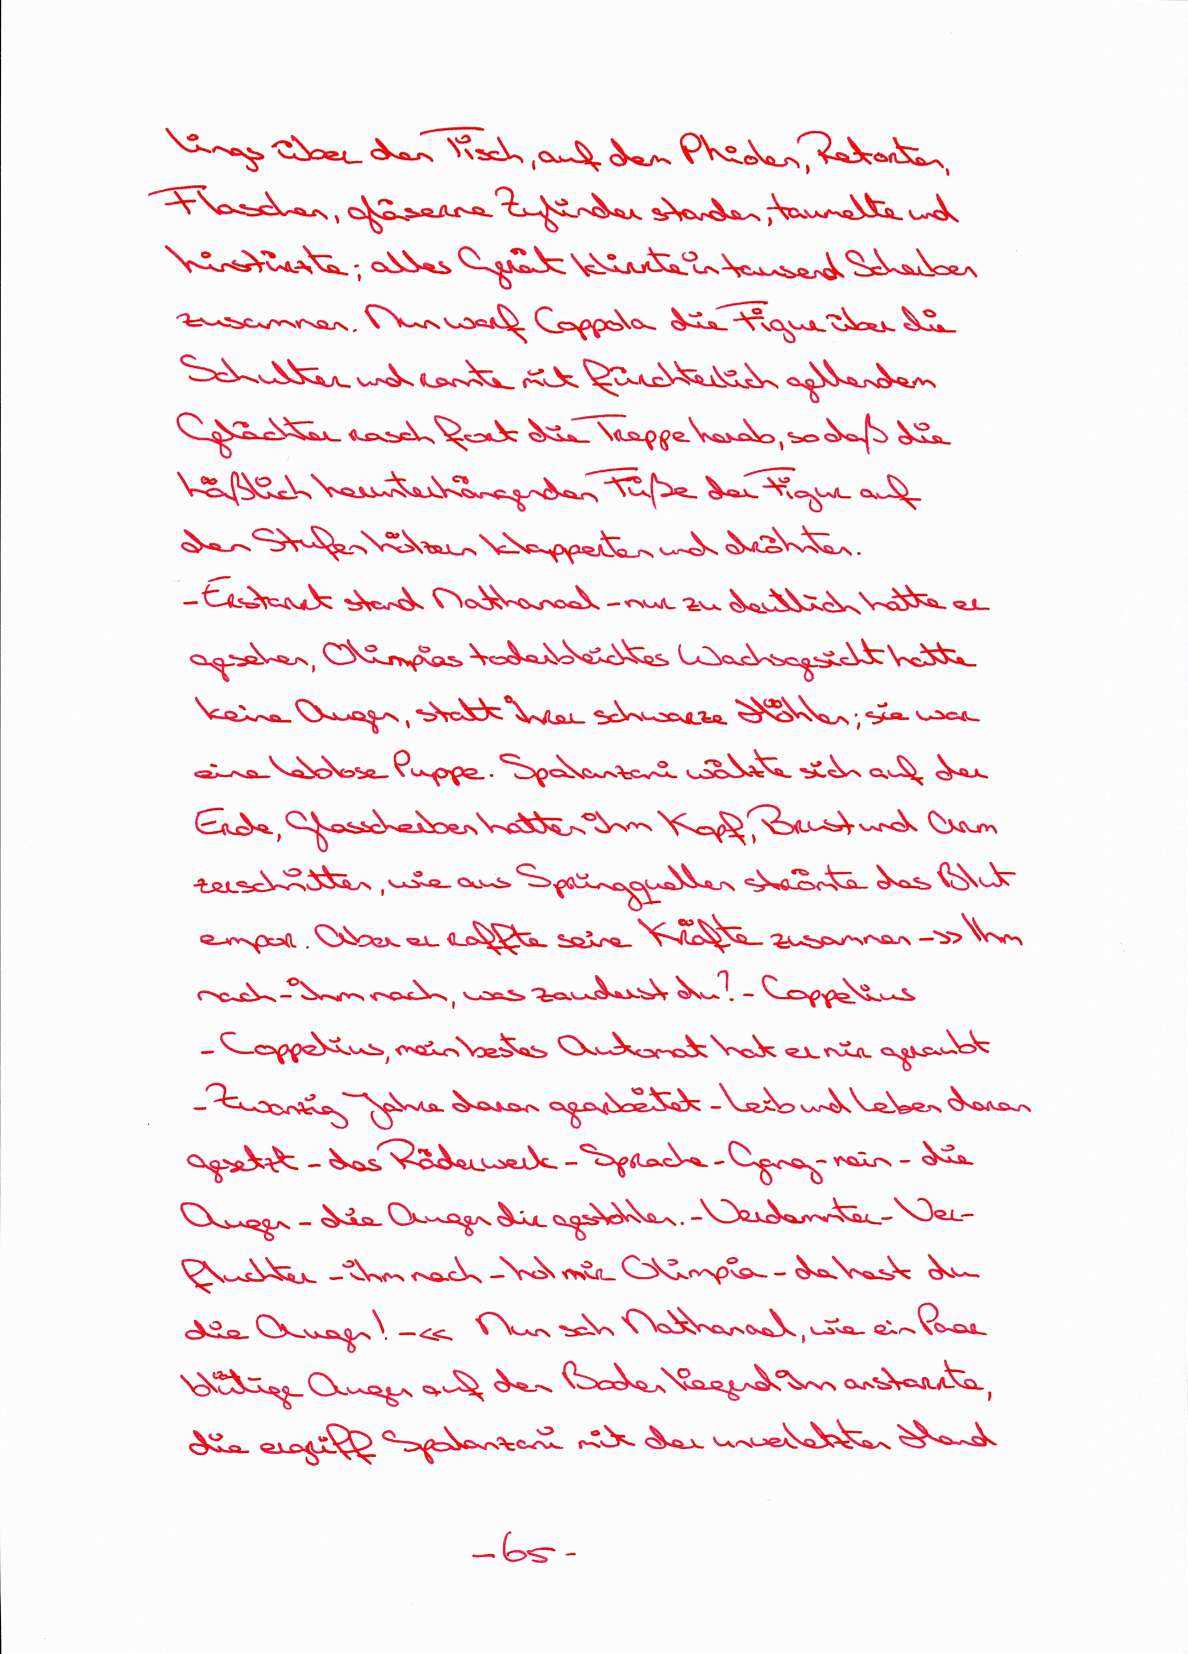 lings über den Tisch, auf dem Phiolen, Retorten,
Flaschen, gläserne Zylinder standen, taumelte und
hinstürzte; alles Gerät klirrte in tausend Scherben
zusammen. Nun warf Coppola die Figur über die
Schulter und rannte mit fürchterlich gellendem
Gelächter rasch fort die Treppe herab, so daß die
häßlich herunterhängenden Füße der Figur auf
den Stufen hölzern klapperten und dröhnten.
- Erstarrt stand Nathanael - nur zu deutlich hatte er
gesehen, Olimpias toderbleichtes Wachsgesicht hatte
keine Augen, statt ihrer schwarze Höhlen; sie war
eine leblose Puppe. Spalanzani wälzte sich auf der
Erde, Glasscherben hatten ihm Kopf, Brust und Arm
zerschnitten, wie aus Springquellen strömte das Blut
empor. Aber er raffte seine Kräfte zusammen - »Ihm
nach - ihm nach, was zauderst du? - Coppelius
- Coppelius, mein bestes Automat hat er mir geraubt
- Zwanzig Jahre daran gearbeitet - Leib und Leben daran
gesetzt - das Räderwerk - Sprache - Gang - mein - die
Augen - die Augen dir gestohlen. - Verdammter - Ver-
fluchter - ihm nach - hol mir Olimpia - da hast du
die Augen! - « Nun sah Nathanael, wie ein Paar
blutige Augen auf dem Boden liegend ihn anstarrte,
die ergriff Spalanzani mit der unverletzten Hand
- 65 -